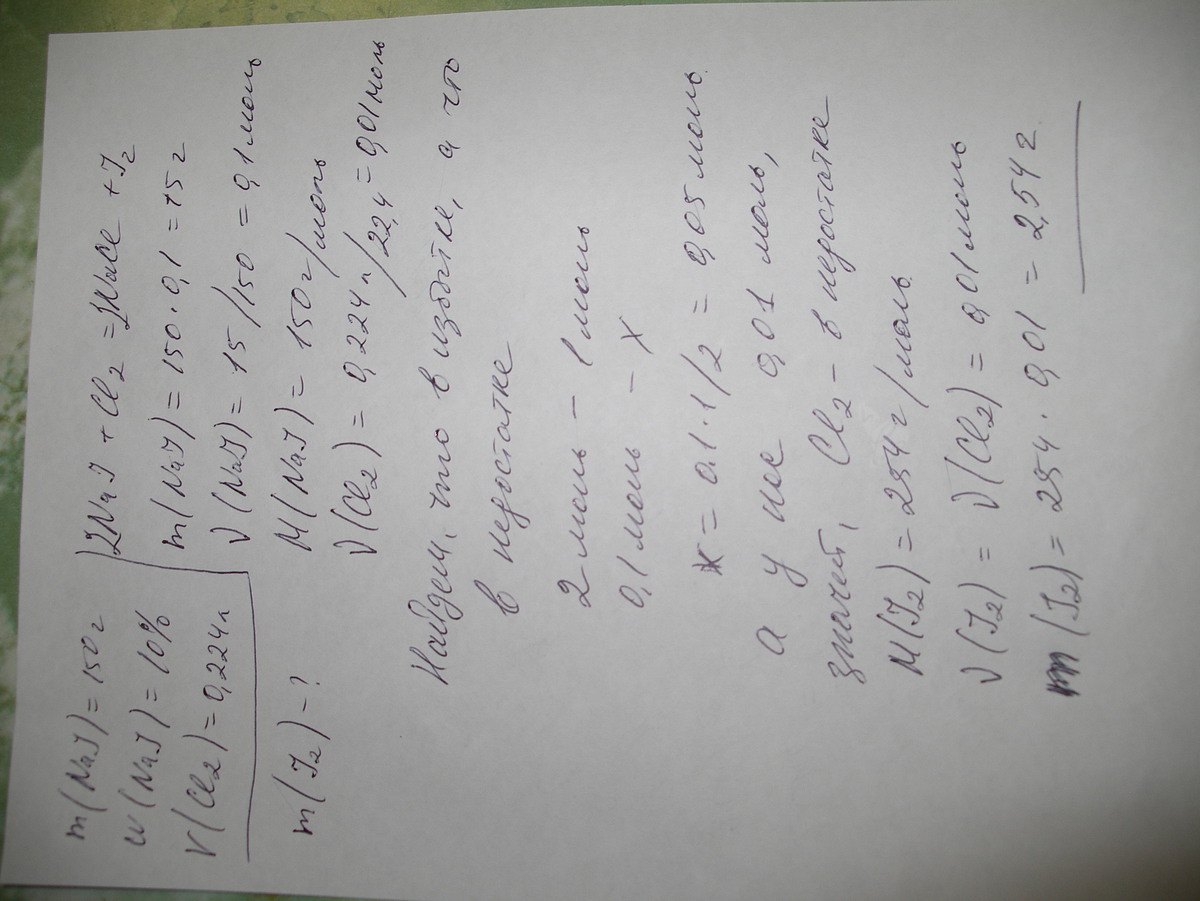 m(NaJ) = 150 г
w(NaJ) = 10%
V(Cl₂) = 0,224 л
m(J₂) - ?
2NaJ + Cl₂ = 2NaCl + J₂
m(NaJ) = 150 · 0,1 = 15 г
ν(NaJ) = 15/150 = 0,1 моль
M(NaJ) = 150 г/моль
ν(Cl₂) = 0,224 л/22,4 = 0,01 моль
Найдем, что в избытке, а что
в недостатке
2 моль – 1 моль
0,1 моль – x
x = 0,1 · 1/2 = 0,05 моль.
а у нас 0,01 моль,
значит, Cl₂ – в недостатке
M(J₂) = 254 г/моль.
ν(J₂) = ν(Cl₂) = 0,01 моль
m(J₂) = 254 · 0,01 = 2,54 г